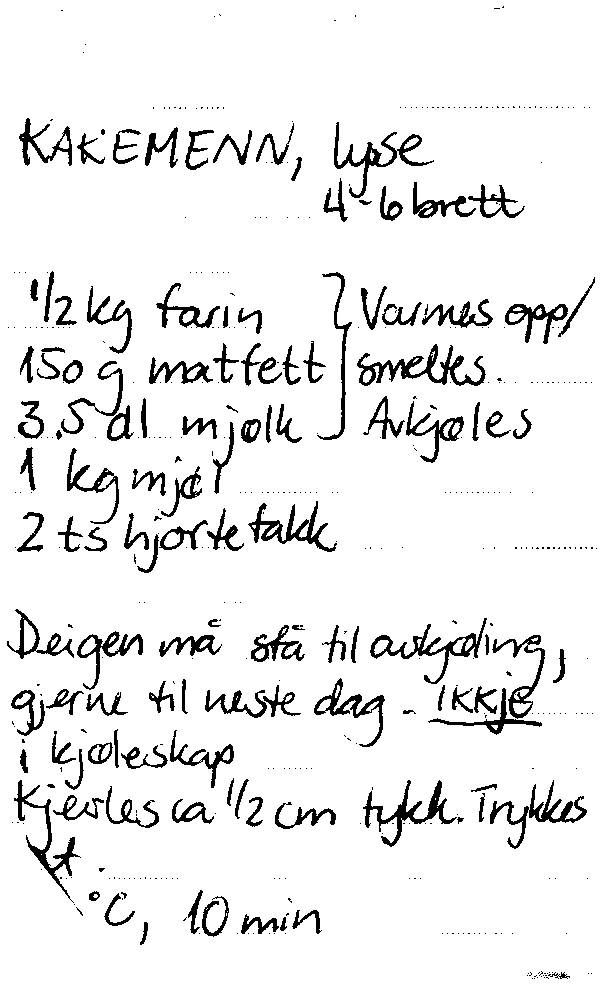 KAKEMENN, lyse
4-6 brett
1/2 kg farin } Varmes opp/
150 g matfett smeltes.
3.5 dl mjølk Avkjøles
1 kg mjøl
2 ts hjortetakk
Deigen må stå til avkjøling,
gjerne til neste dag. IKKJE
i kjøleskap
Kjevles ca 1/2 cm tykk. Trykkes
ut.
°C, 10 min